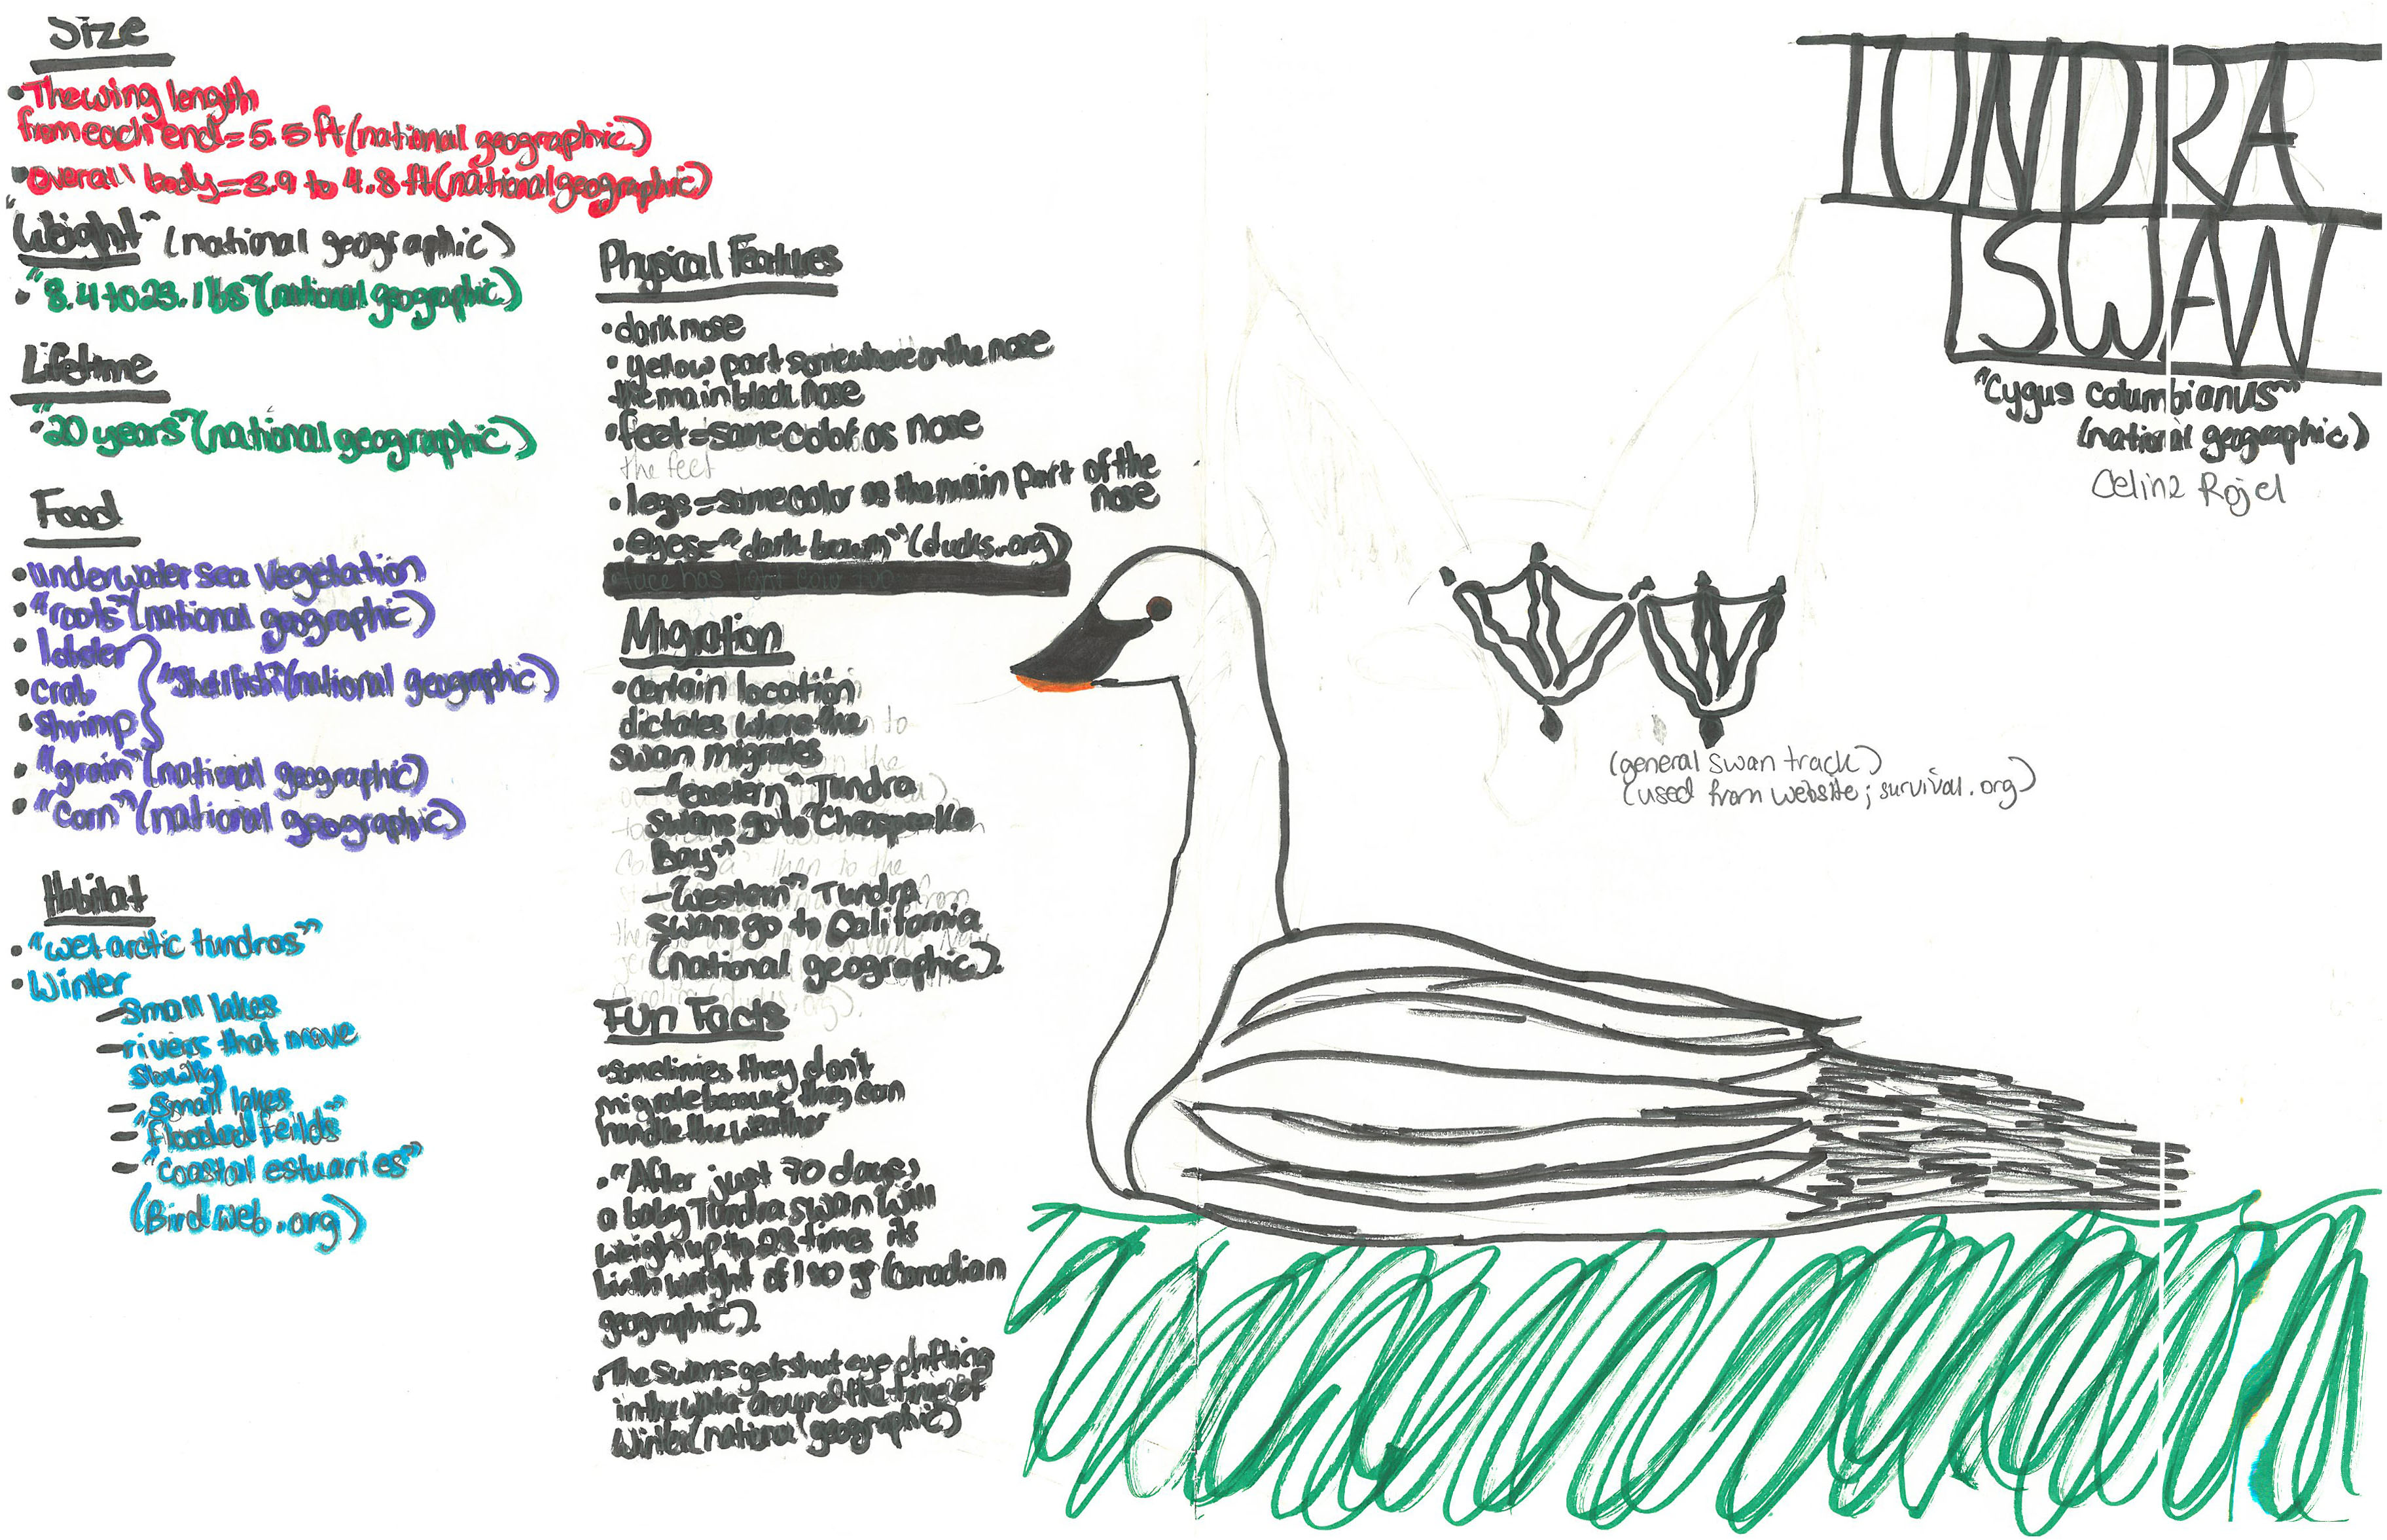 Size
• The wing length
from each end = 5.5 ft (national geographic)
• overall body = 3.9 to 4.8 ft (national geographic)
"Weight" (national geographic)
• "8.4 to 23.1 lbs" (national geographic)
Lifetime
• "20 years" (national geographic)
Food
• underwater sea vegetation
• "roots" (national geographic)
• lobster
• crab
• shrimp
"Shellfish" (national geographic)
• "grain" (national geographic)
• "Corn" (national geographic)
Habitat
• "wet arctic tundras"
• Winter
– Small lakes
– rivers that move
slowly
– Small lakes
– "flooded feilds"
– "Coastal estuaries"
(Birdweb.org)
Physical Features
• dark nose
• yellow part somewhere on the nose
the main black nose
• feet = same color as nose
the feet
• legs = same color as the main part of the
nose
• eyes = "dark brown" (ducks.org)
Migration
• Certain location
dictates where the
swan migrates
– "eastern" Tundra
swans go to "Cheaspeake
Bay"
– "Western" Tundra
swans go to California
(national geographic).
Fun Facts
• Sometimes they don't
migrate because they can
handle the weather
• "After just 70 days,
a baby Tundra swan will
weigh up to 28 times its
birth weight of 180 g (Canadian
geographic).
• The Swans get shut eye drifting
in the water around the time of
Winter (national geographic)
TUNDRA
SWAN
"Cygus columbianus"
(national geographic)
Celina Rojel
(general swan track)
(used from website; survival.org)